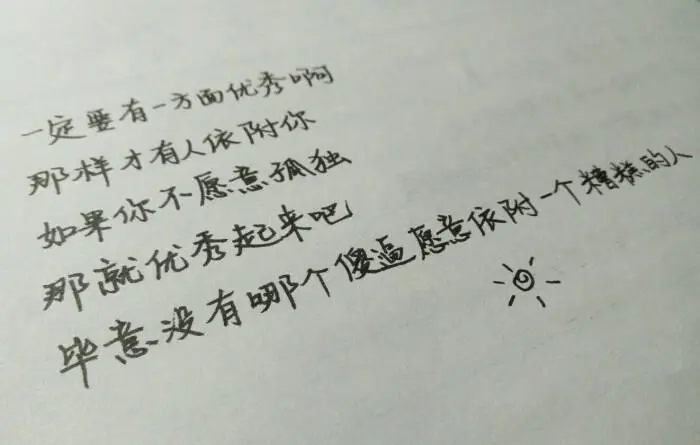 一定要有一方面优秀啊
那样才有人依附你
如果你不愿意孤独
那就优秀起来吧
毕意没有哪个傻逼愿意依附一个糟糕的人